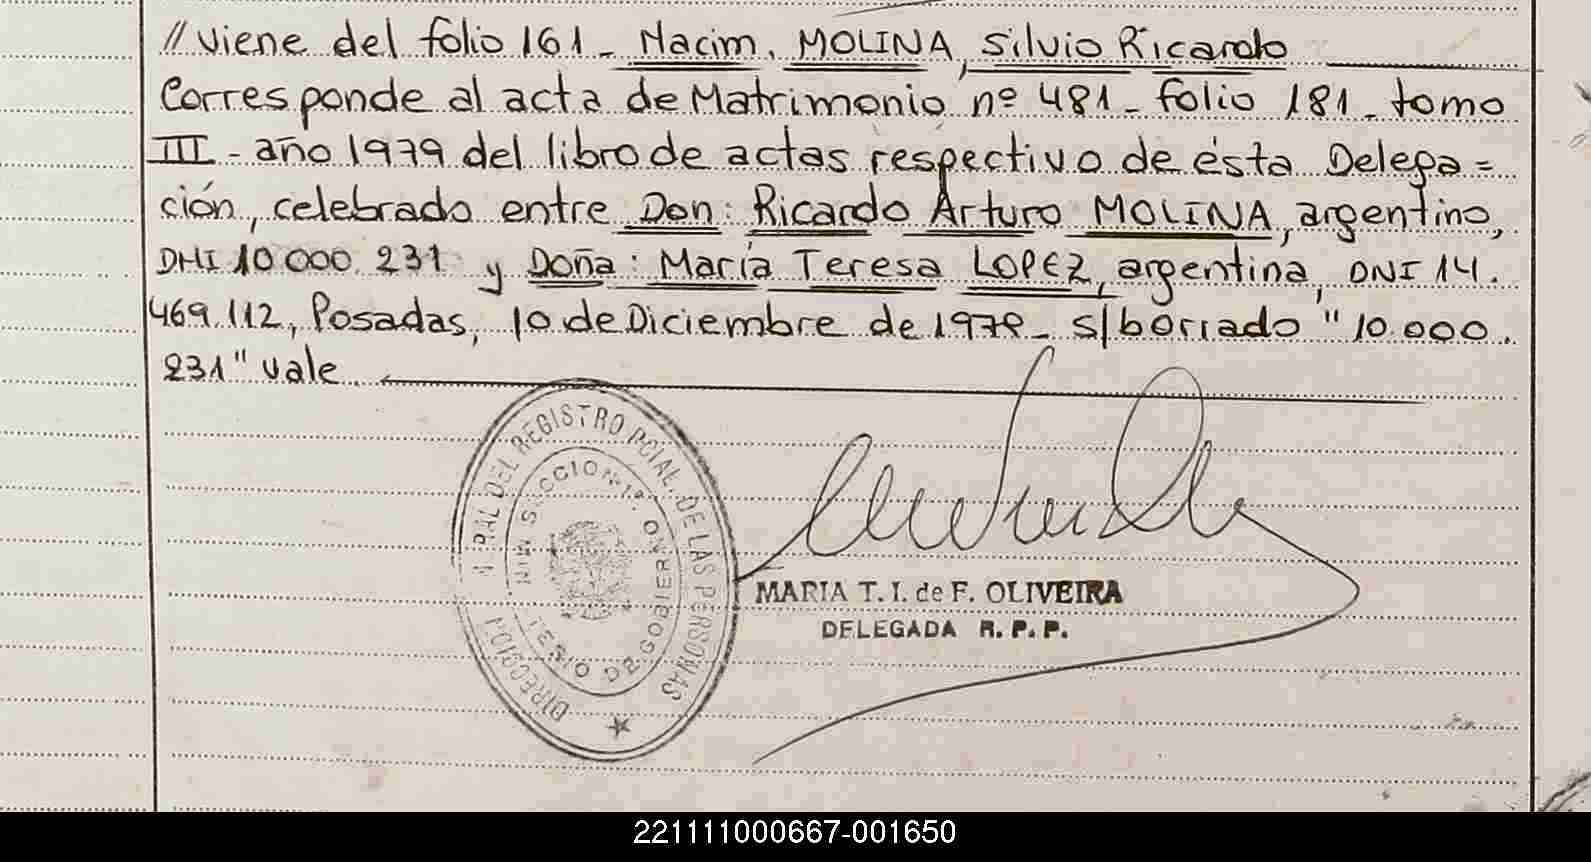 // viene del folio 161_ Nacim. MOLINA, Silvio Ricardo
Corresponde al acta de Matrimonio nº 481_ folio 181_ tomo
III_ año 1979 del libro de actas respectivo de ésta Delega=
ción, celebrado entre Don: Ricardo Arturo MOLINA, argentino,
DNI 10 000 231 y Doña: María Teresa LOPEZ, argentina, DNI 14.
469.112, Posadas, 10 de Diciembre de 1979_ s/borrado "10.000.
231" vale
DIRECCION GRAL DEL REGISTRO PCIAL. DE LAS PERSONAS
MINISTERIO DE GOBIERNO
MARIA T. I. de F. OLIVEIRA
DELEGADA R. P. P.
221111000667-001650